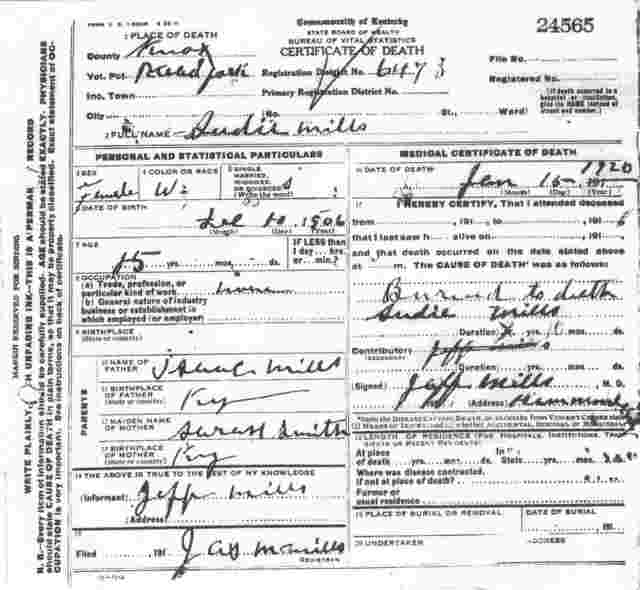 Commonwealth of Kentucky
STATE BOARD OF HEALTH
BUREAU OF VITAL STATISTICS
CERTIFICATE OF DEATH
24565
1 PLACE OF DEATH
County Knox
Vot. Pct.
Registration District No.
File No.
Inc. Town
Primary Registration District No.
Registered No.
City
(No. St., Ward)
(If death occurred in a hospital or institution, give its NAME instead of street and number.)
2 FULL NAME Sudie Mills
PERSONAL AND STATISTICAL PARTICULARS
3 SEX
Female
4 COLOR OR RACE
W
5 SINGLE, MARRIED, WIDOWED, OR DIVORCED
(Write the word) S
6 DATE OF BIRTH
Dec 10, 1906
(Month) (Day) (Year)
7 AGE
yrs. mos. ds.
IF LESS than 1 day... hrs. or... min.?
8 OCCUPATION
(a) Trade, profession, or particular kind of work
(b) General nature of industry business or establishment in which employed (or employer)
9 BIRTHPLACE
(State or country)
PARENTS
10 NAME OF FATHER
Mills
11 BIRTHPLACE OF FATHER
(State or country)
Ky
12 MAIDEN NAME OF MOTHER
Smith
13 BIRTHPLACE OF MOTHER
(State or country)
Ky
14 THE ABOVE IS TRUE TO THE BEST OF MY KNOWLEDGE
(Informant) Jeff Mills
(Address)
15
Filed 191
Mills
REGISTRAR
MEDICAL CERTIFICATE OF DEATH
16 DATE OF DEATH
Jan 15 1920
(Month) (Day) (Year)
17 I HEREBY CERTIFY, That I attended deceased
from 191 to 191
that I last saw h alive on 191
and that death occurred on the date stated above
at m. The CAUSE OF DEATH was as follows:
Burned to death
Sudie Mills
(Duration) yrs. mos. ds.
Contributory
(SECONDARY)
(Duration) yrs. mos. ds.
(Signed) Jeff Mills, M. D.
191 (Address) Hammond
18 LENGTH OF RESIDENCE (FOR HOSPITALS, INSTITUTIONS, TRANSIENTS OR RECENT RESIDENTS)
At place of death yrs. mos. ds.
In the State yrs. mos. ds.
Where was disease contracted, if not at place of death?
Former or usual residence
19 PLACE OF BURIAL OR REMOVAL
DATE OF BURIAL
191
20 UNDERTAKER
ADDRESS
MARGIN RESERVED FOR BINDING
WRITE PLAINLY, WITH UNFADING INK—THIS IS A PERMANENT RECORD
N. B.—Every item of information should be carefully supplied. AGE should be stated EXACTLY. PHYSICIANS
should state CAUSE OF DEATH in plain terms, so that it may be properly classified. Exact statement of OC-
CUPATION is very important. See instructions on back of certificate.